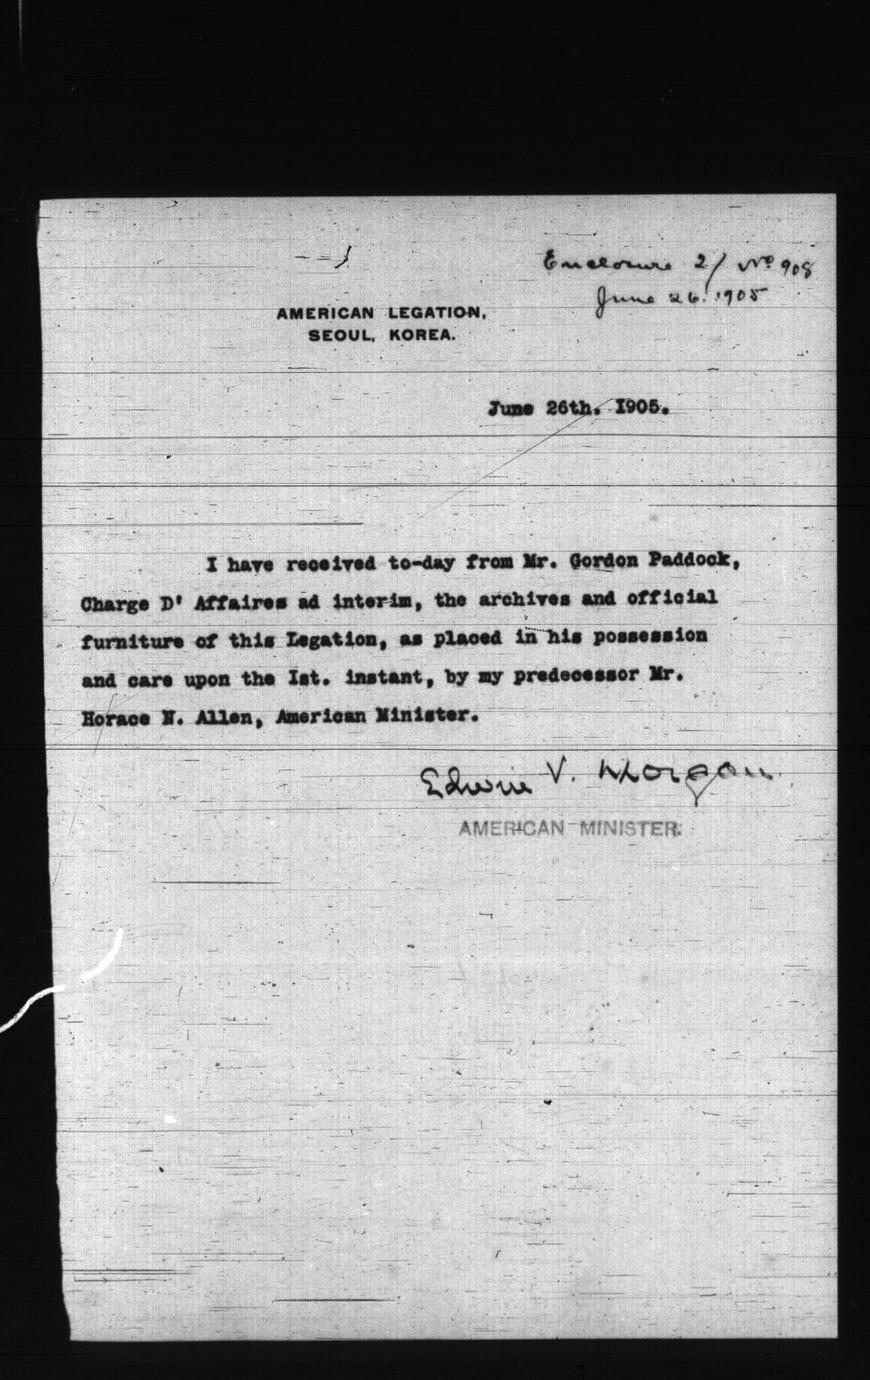 Enclosure 2/ No 908
June 26. 1905
AMERICAN LEGATION,
SEOUL, KOREA.
June 26th. I905.
I have received to-day from Mr. Gordon Paddock,
Charge D' Affaires ad interim, the archives and official
furniture of this Legation, as placed in his possession
and care upon the Ist. instant, by my predecessor Mr.
Horace N. Allen, American Minister.
Edwin V. Morgan
AMERICAN MINISTER.